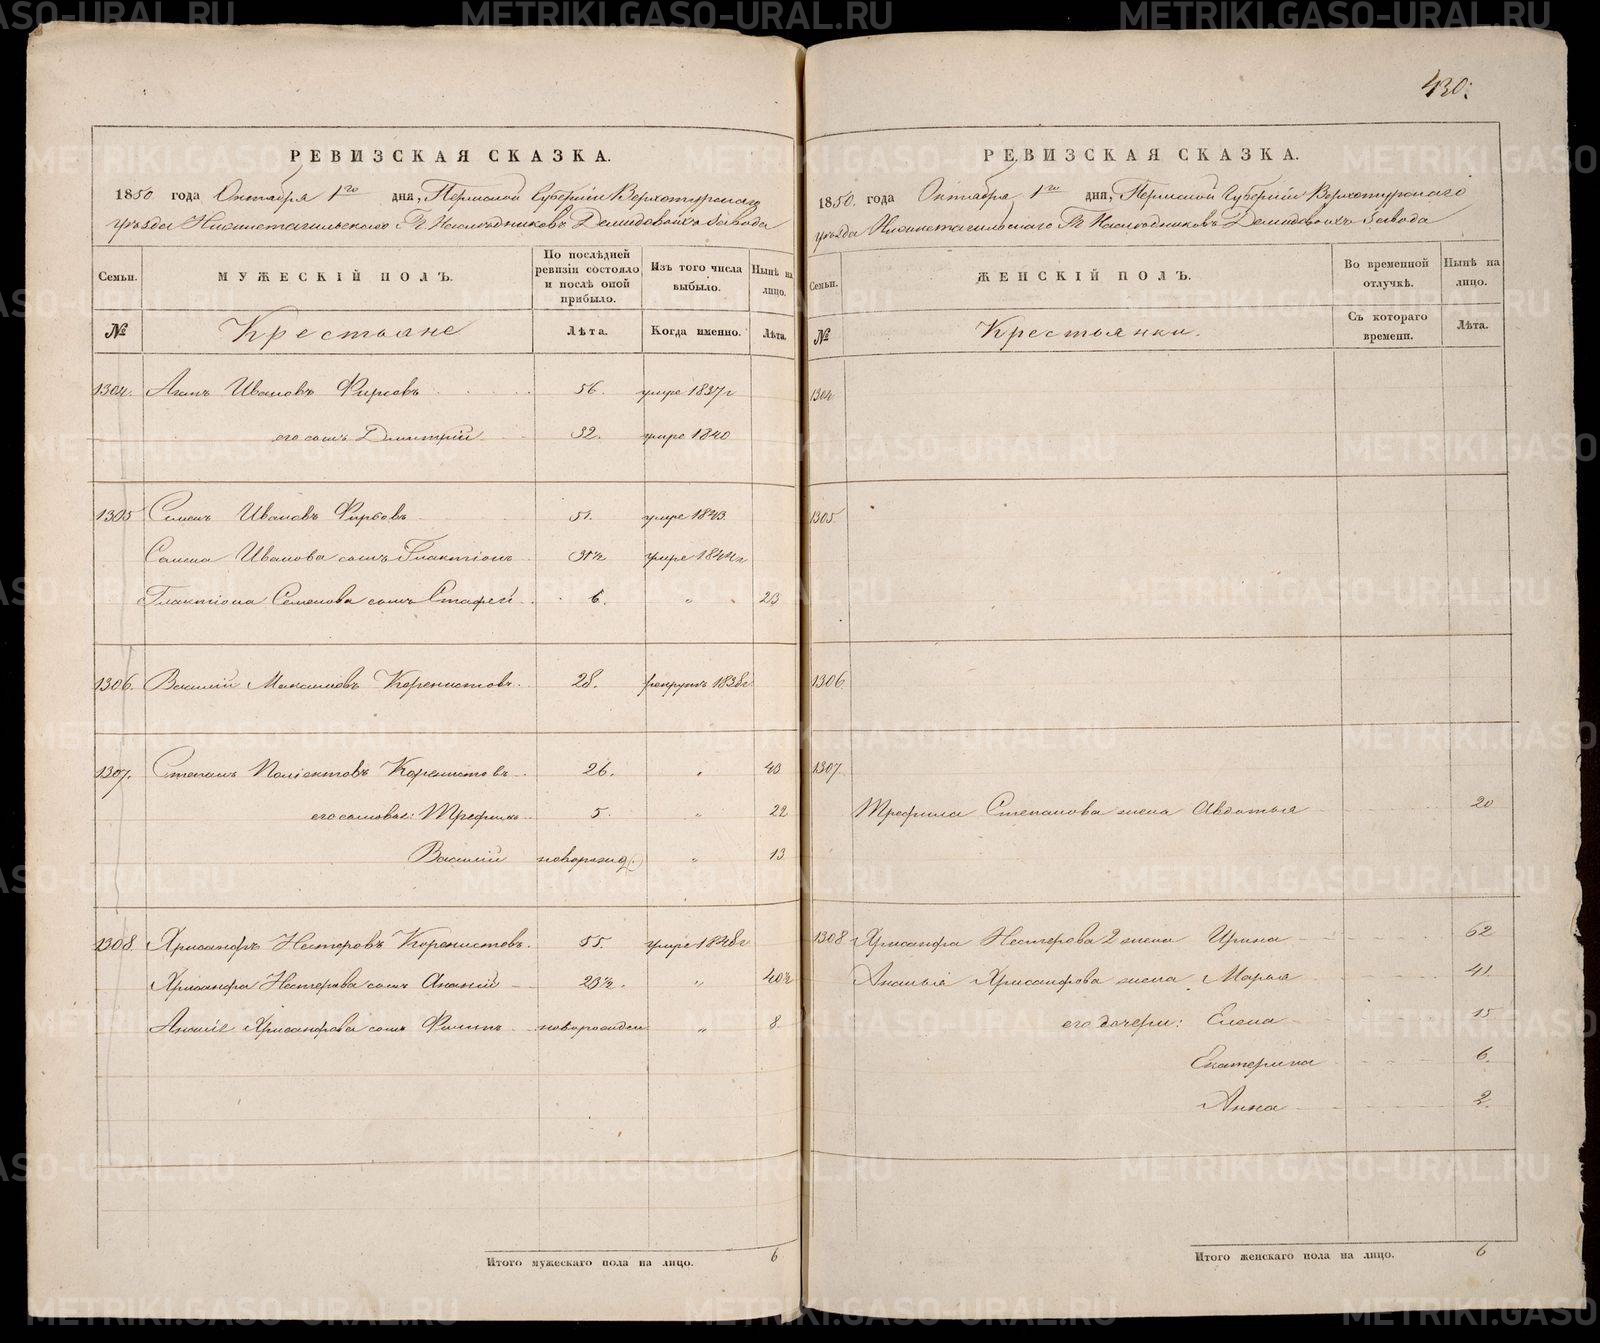 430.
РЕВИЗСКАЯ СКАЗКА.
1850 года Октября 1го дня, Пермской Губерніи Верхотурскаго
уѣзда Нижнетагильскаго Г. Наслѣдниковъ Демидовыхъ Завода
Семьи. МУЖЕСКІЙ ПОЛЪ. По послѣдней ревизіи состояло и послѣ оной прибыло. Изъ того числа выбыло. Нынѣ на лицо.
№ Крестьяне Лѣта. Когда именно. Лѣта.
1304. Агапъ Ивановъ Фирсовъ 56. умре 1837 г
его сынъ Дмитрій 32. умре 1840
1305 Семенъ Ивановъ Фирсовъ 51. умре 1843.
Семена Иванова сынъ Галактіонъ умре 1844 г
Галактіона Семенова сынъ Стафей 6. " 23
1306. Василій Максимовъ Коренистовъ 28. рекрутъ 1838 г.
1307. Степанъ Поліектовъ Коренистовъ 26. " 43
его сыновья: Трефилъ 5. " 22
Василій новорожд. " 13
1308. Хрисанфъ Нестеровъ Коренистовъ. 55. умре 1848 г
Хрисанфа Нестерова сынъ Ананій 23½. " 40½
Ананіе Хрисанфова сынъ Филипъ новорожден " 8
Итого мужескаго пола на лицо. 6
РЕВИЗСКАЯ СКАЗКА.
1850. года Октября 1го дня, Пермской Губерніи Верхотурскаго
уѣзда Нижнетагильскаго Г. Наслѣдниковъ Демидовыхъ Завода
Семьи. ЖЕНСКІЙ ПОЛЪ. Во временной отлучкѣ. Нынѣ на лицо.
№ Крестьянки. Съ котораго времени. Лѣта.
1304
1305
1306
1307
Трефила Степанова жена Авдотья 20
1308 Хрисанфа Нестерова 2 жена Ирина 62
Ананія Хрисанфова жена Марья 41.
его дочери: Елена 15
Екатерина 6.
Анна 2.
Итого женскаго пола на лицо. 6
METRIKI.GASO-URAL.RU